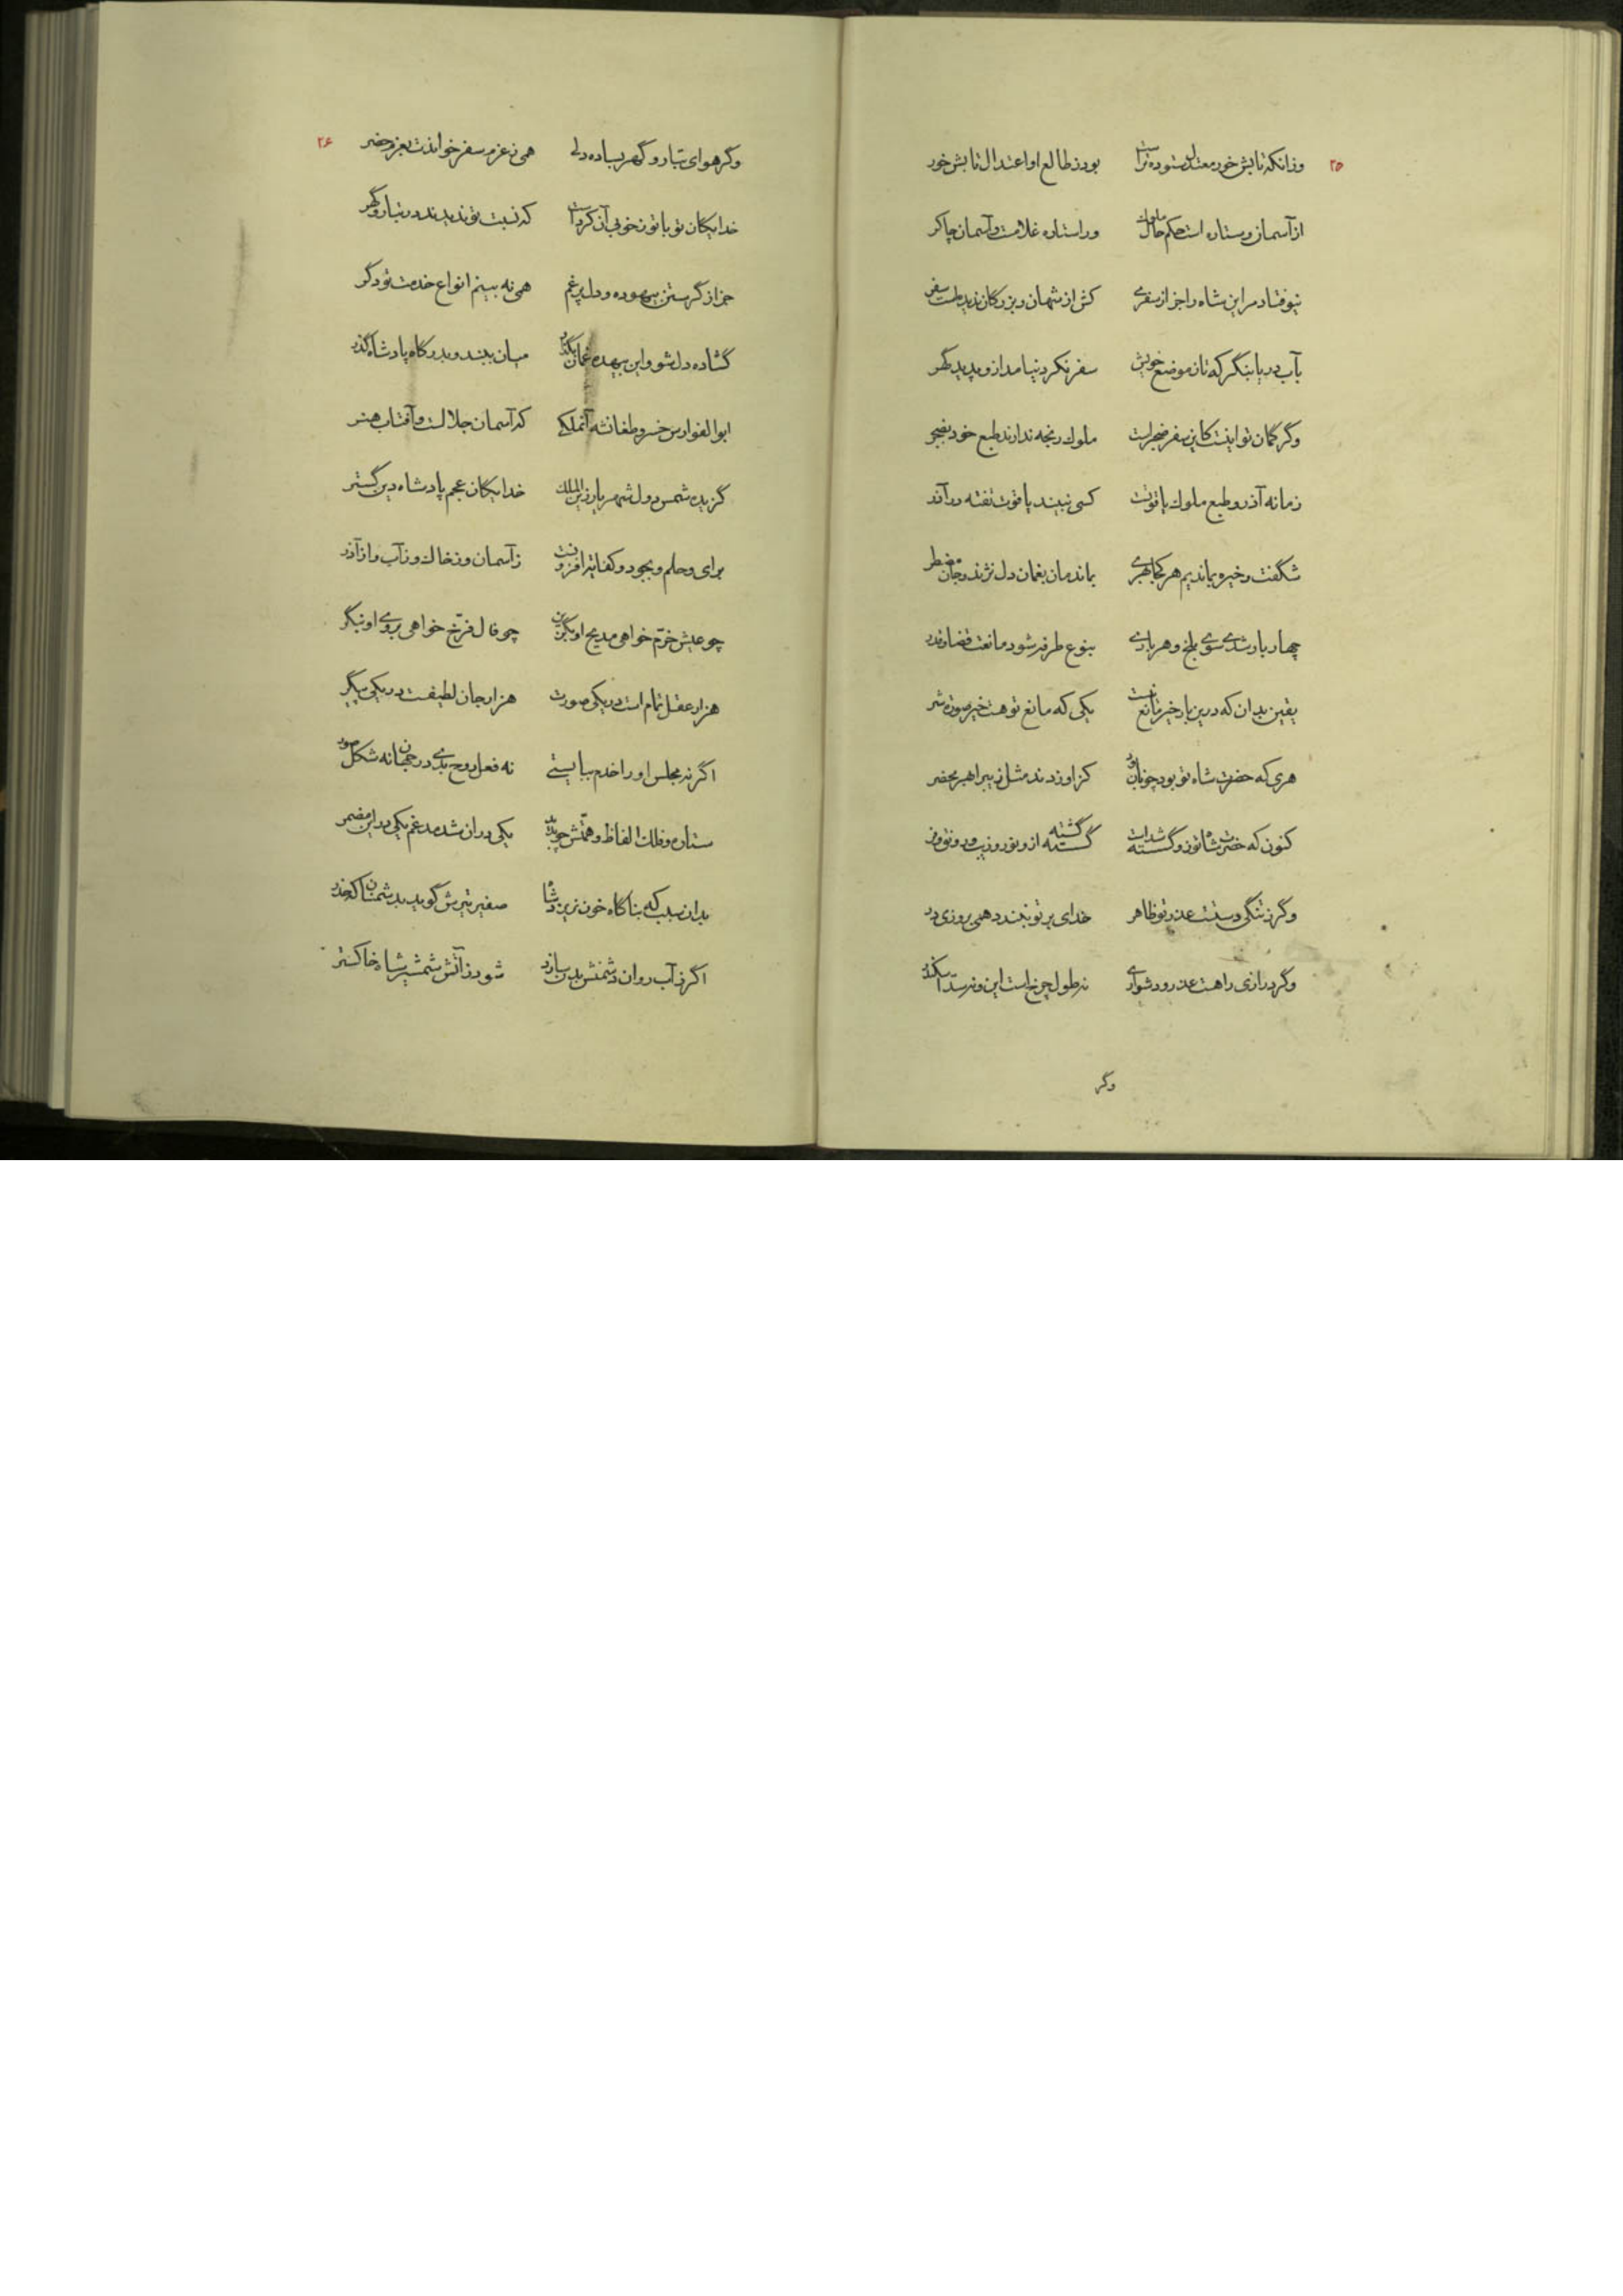 ۲۵
وزانکه تابش خور معتدل ستوده تراست بود ز طالع او اعتدال تابش خور
از آسمان و ستاره است حکم حال ملوک ورا ستاره غلامست و آسمان چاکر
نیوفتاد مر این شاه را جز از سفری کش از شهان و بزرگان ندید سفر
بآب دریا بنگر که تا ز موضع خویش سفر نکرد نیامد ازو پدید گهر
وگر گمان تو اینست کاین سفر ضجرلست ملوک رنجه ندارند طبع خود بضجر
زمانه آذر و طبع ملوک یاقوتست کسی نبیند یاقوت تفته در آذر
شگفت و خیره بماندیم هر کجا بهری بماندمان بغمان دل نژند و جان مضطر
چهار بار شدی سوی بلخ و هر باری بنوع طرفه شود مانعت قضا و قدر
یقین بدان که درین بار خیر مانع تست یکی که مانع تو هست خیر صورت شر
هری که حضرت شاه تو بود چونان بود کز او زدند مثل زیرا هبر بحضر
کنون که حضرت شاه تو زو گسسته شدست گسسته گشته ازو نور و زیب و رونق و فر
وگر ز تنگی دستت عذر تو ظاهر خدای بر تو نبندد همی روزی در
وگر درازی راهست عذر و دشواری نه طول چرخ است این و نه سد اسکندر
وگر
۲۶
وگر هوای تبار و گهر بساده دلی همی ز عزم سفر خواندت بعزم حضر
خدایگان تو با تو ز خوبی آن کردست که نسبت تو ندیدند در تبار و گهر
جز از گرستن بیهوده و دل پر غم همی نه بینم انواع خدمت تو دگر
گشاده دل شو و این بیهده غمان بگذار میان ببند و بدرگاه پادشاه گذر
ابوالفوارس خسرو طغانشه آنملکی که آسمان جلالست و آفتاب هنر
گزیده شمس دول شهریار زین الملک خدایگان عجم پادشاه دین گستر
برای و حلم و بجود و کفایت افزونست ز آسمان و ز خاک و ز آب و از آذر
چو عیش خرّم خواهی مدیح او بگزین چو فال فرّخ خواهی بروی او بنگر
هزار عقل تمام است در یکی صورت هزار جان لطیفست در یکی پیکر
اگر نه مجلس او را خدم ببایستی نه فعل روح بدی در جهان نه شکل صور
ستاره و فلک الفاظ و همّتش جویند یکی در آن شده مدغم یکی در این مضمر
بدان سبب که بناگاه خون نریزد شاه صفیر تیرش گوید بدشمنان که حذر
اگر ز آب روان دشمنش بدن سازد شود ز آتش شمشیر شاه خاکستر